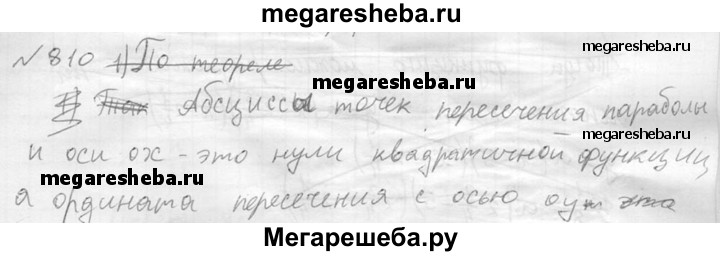 megaresheba.ru
№ 810 1) По теореме
megaresheba.ru
megaresheba.ru
Так Абсциссы точек пересечения параболы
megaresheba.ru
и оси ох - это нули квадратичной функции
megaresheba.ru
а ордината пересечения с осью оу это
Мегарешеба.ру